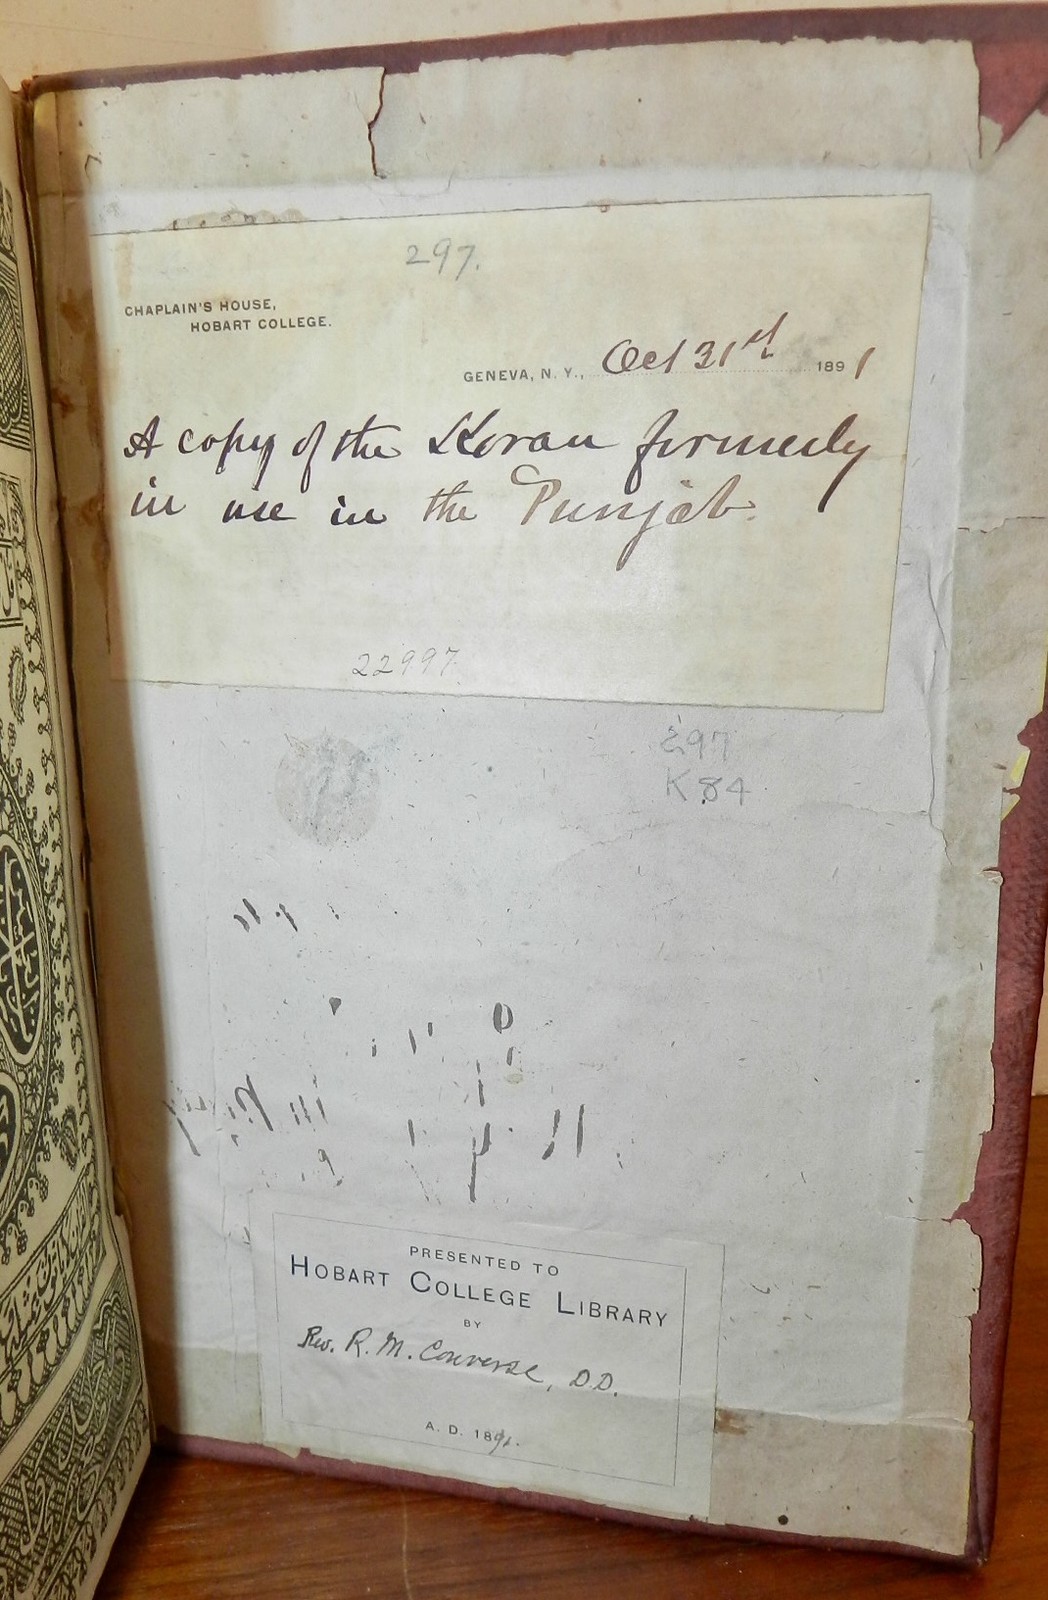 297.
CHAPLAIN'S HOUSE,
HOBART COLLEGE.
GENEVA, N. Y., Oct 31st 1891
A copy of the Koran formerly
in use in the Punjab.
22997.
297
K84
PRESENTED TO
HOBART COLLEGE LIBRARY
BY
Rev. R. M. Converse, D.D.
A. D. 1891.